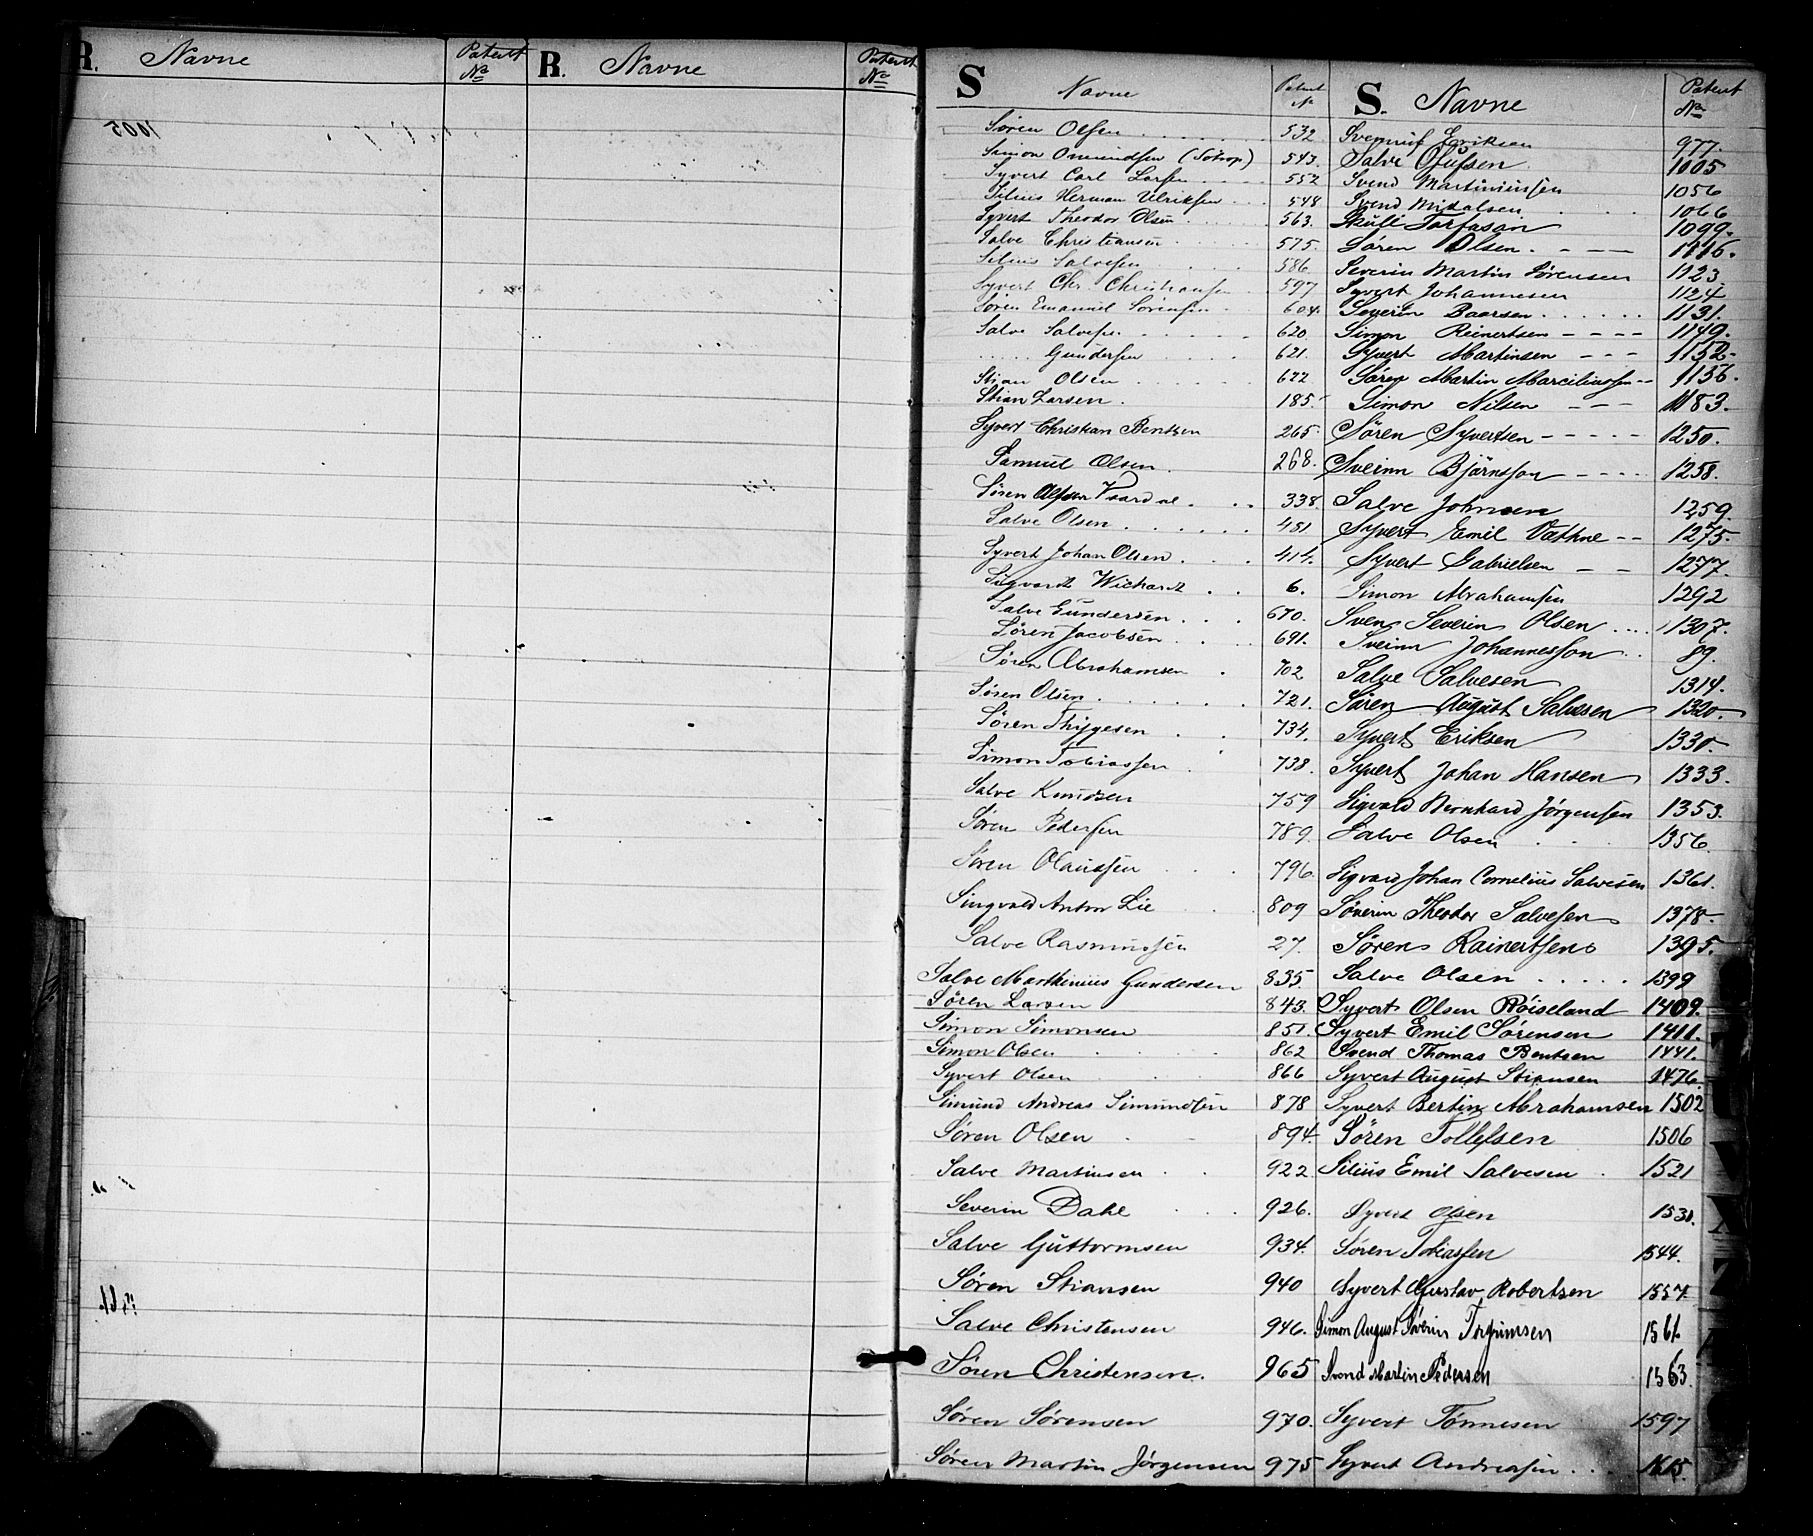 R. Navne Patent No
R. Navne Patent No
S Navne Patent N
Søren Olsen 532
Simon Omundsen (Sotrop) 543.
Syvert Carl Larsen 552
Silius Herman Ulriksen 548
Syvert Theodor Olsen 563.
Salve Christiansen 575.
Silius Salvesen 586
Syvert Chr. Christiansen 597
Søren Emanuel Sörensen 604.
Salve Salvesen 620
..... Gundersen 621.
Stian Olsen 622
Stian Larsen 185.
Syvert Christian Bentsen 265.
Samuel Olsen 268.
Søren Olsen Vaardal 338.
Salve Olsen 401
Syvert Johan Olsen 414.
Sigvardt Wichardt 6.
Salve Gundersen 670.
Søren Jacobsen 691.
Søren Abrahamsen 702
Søren Olsen 721.
Søren Thygesen 734.
Simon Tobiassen 738.
Salve Knudsen 759
Søren Pedersen 789.
Søren Olaussen 796.
Singvald Anton Lie 809
Salve Rasmussen 27.
Salve Marthinius Gundersen 835.
Søren Larsen 843.
Simon Simonsen 851.
Simon Olsen 862
Syvert Olsen 866
Simund Andreas Simundsen 878
Søren Olsen 894
Salve Martinsen 922
Severin Dahl 926.
Salve Guttormsen 934.
Søren Stiansen 940
Salve Christensen 946.
Søren Christensen. 965
Søren Sørensen 970.
Søren Martin Jörgensen 975
S. Navne Patent No
Eriksen 977.
Salve Olufsen 1005
Svend Martiniussen 1056
Svend Mikalsen 1066
Skuli Torfason 1099.
Sören Olsen. 1116.
Severin Martin Sørensen 1123
Syvert Johannesen 1124
Severin Baarsen 1131.
Simon Reinertsen 1149.
Syvert Martinsen 1152.
Søren Martin Marciliussen 1156.
Simon Nilsen 1183.
Sören Syvertsen 1250.
Sveinn Björnsson 1258.
Salve Johnsen 1259.
Syvert Emil Vathne 1275.
Syvert Gabrielsen 1277.
Simon Abrahamsen 1292
Sven Severin Olsen 1307.
Sveinn Johannesson 89.
Salve Salvesen 1314.
Sören August Salvesen 1320.
Syvert Eriksen 1330.
Syvert Johan Hansen 1333.
Sigvald Bernhard Jørgensen 1353.
Salve Olsen 1356.
Sigvard Johan Cornelius Salvesen 1361.
Søverin Theodor Salvesen 1378.
Søren Rainertsen 1395.
Salve Olsen 1399
Syvert Olsen Röiseland 1409.
Syvert Emil Sørensen 1411.
Svend Thomas Bentsen 1441.
Syvert August Stiansen 1476.
Syvert Bertin Abrahamsen 1502
Søren Tollefsen 1506
Silius Emil Salvesen 1521
Syvert Olsen 1531.
Søren Tobiassen 1544.
Syvert Gustav Robertsen 1557.
Simon August Severin Torgrimsen 1561.
Svend Martin Pedersen 1563.
Syvert Tønnesen 1597
Syvert Andreasen 1615.